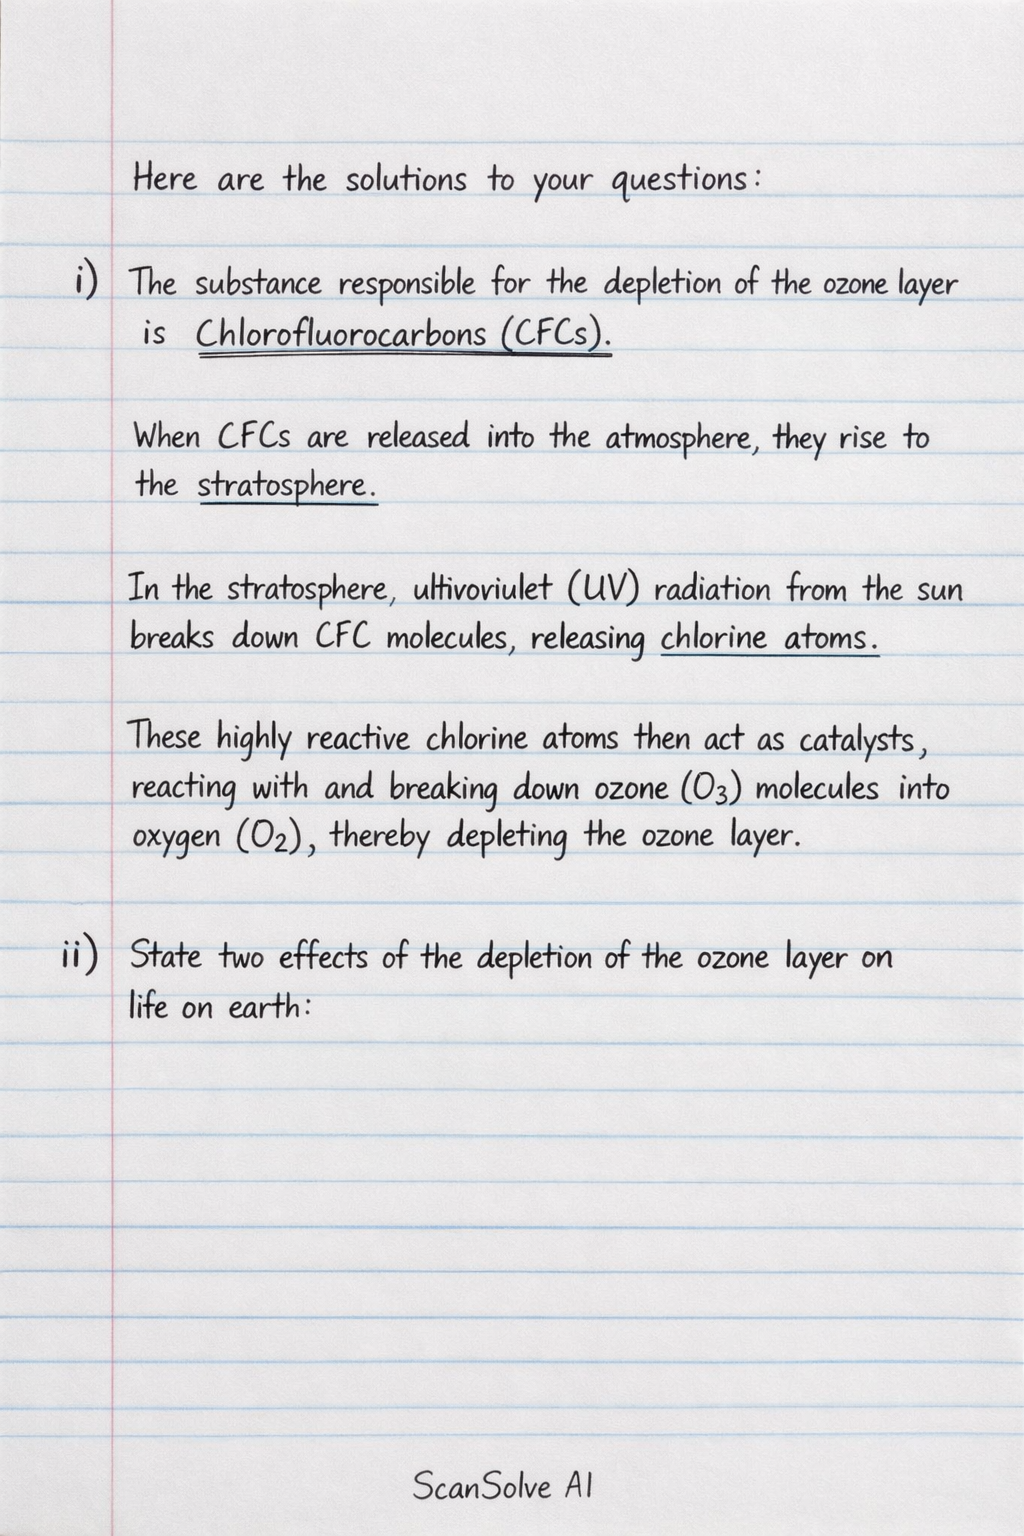 Here are the solutions to your questions:
i) The substance responsible for the depletion of the ozone layer
is Chlorofluorocarbons (CFCs).
When CFCs are released into the atmosphere, they rise to
the stratosphere.
In the stratosphere, ultivoriulet (UV) radiation from the sun
breaks down CFC molecules, releasing chlorine atoms.
These highly reactive chlorine atoms then act as catalysts,
reacting with and breaking down ozone (O₃) molecules into
oxygen (O₂), thereby depleting the ozone layer.
ii) State two effects of the depletion of the ozone layer on
life on earth:
ScanSolve AI